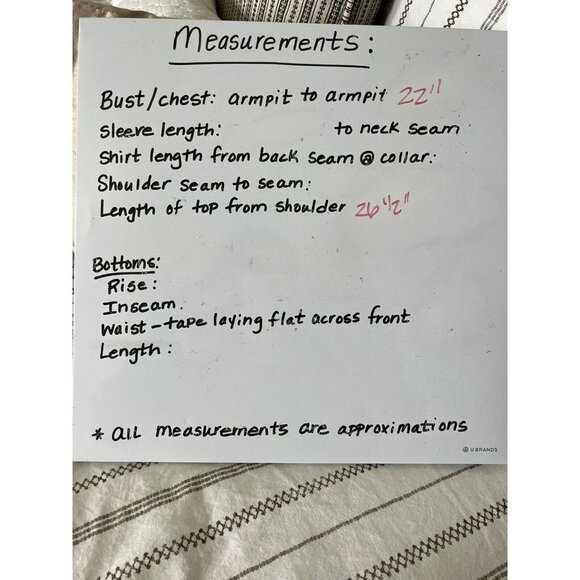 Measurements:
Bust/chest: armpit to armpit 22"
Sleeve length: to neck seam
Shirt length from back seam @ collar:
Shoulder seam to seam:
Length of top from shoulder 26 1/2"
Bottoms:
Rise:
Inseam.
Waist - tape laying flat across front
Length:
* all measurements are approximations
U BRANDS